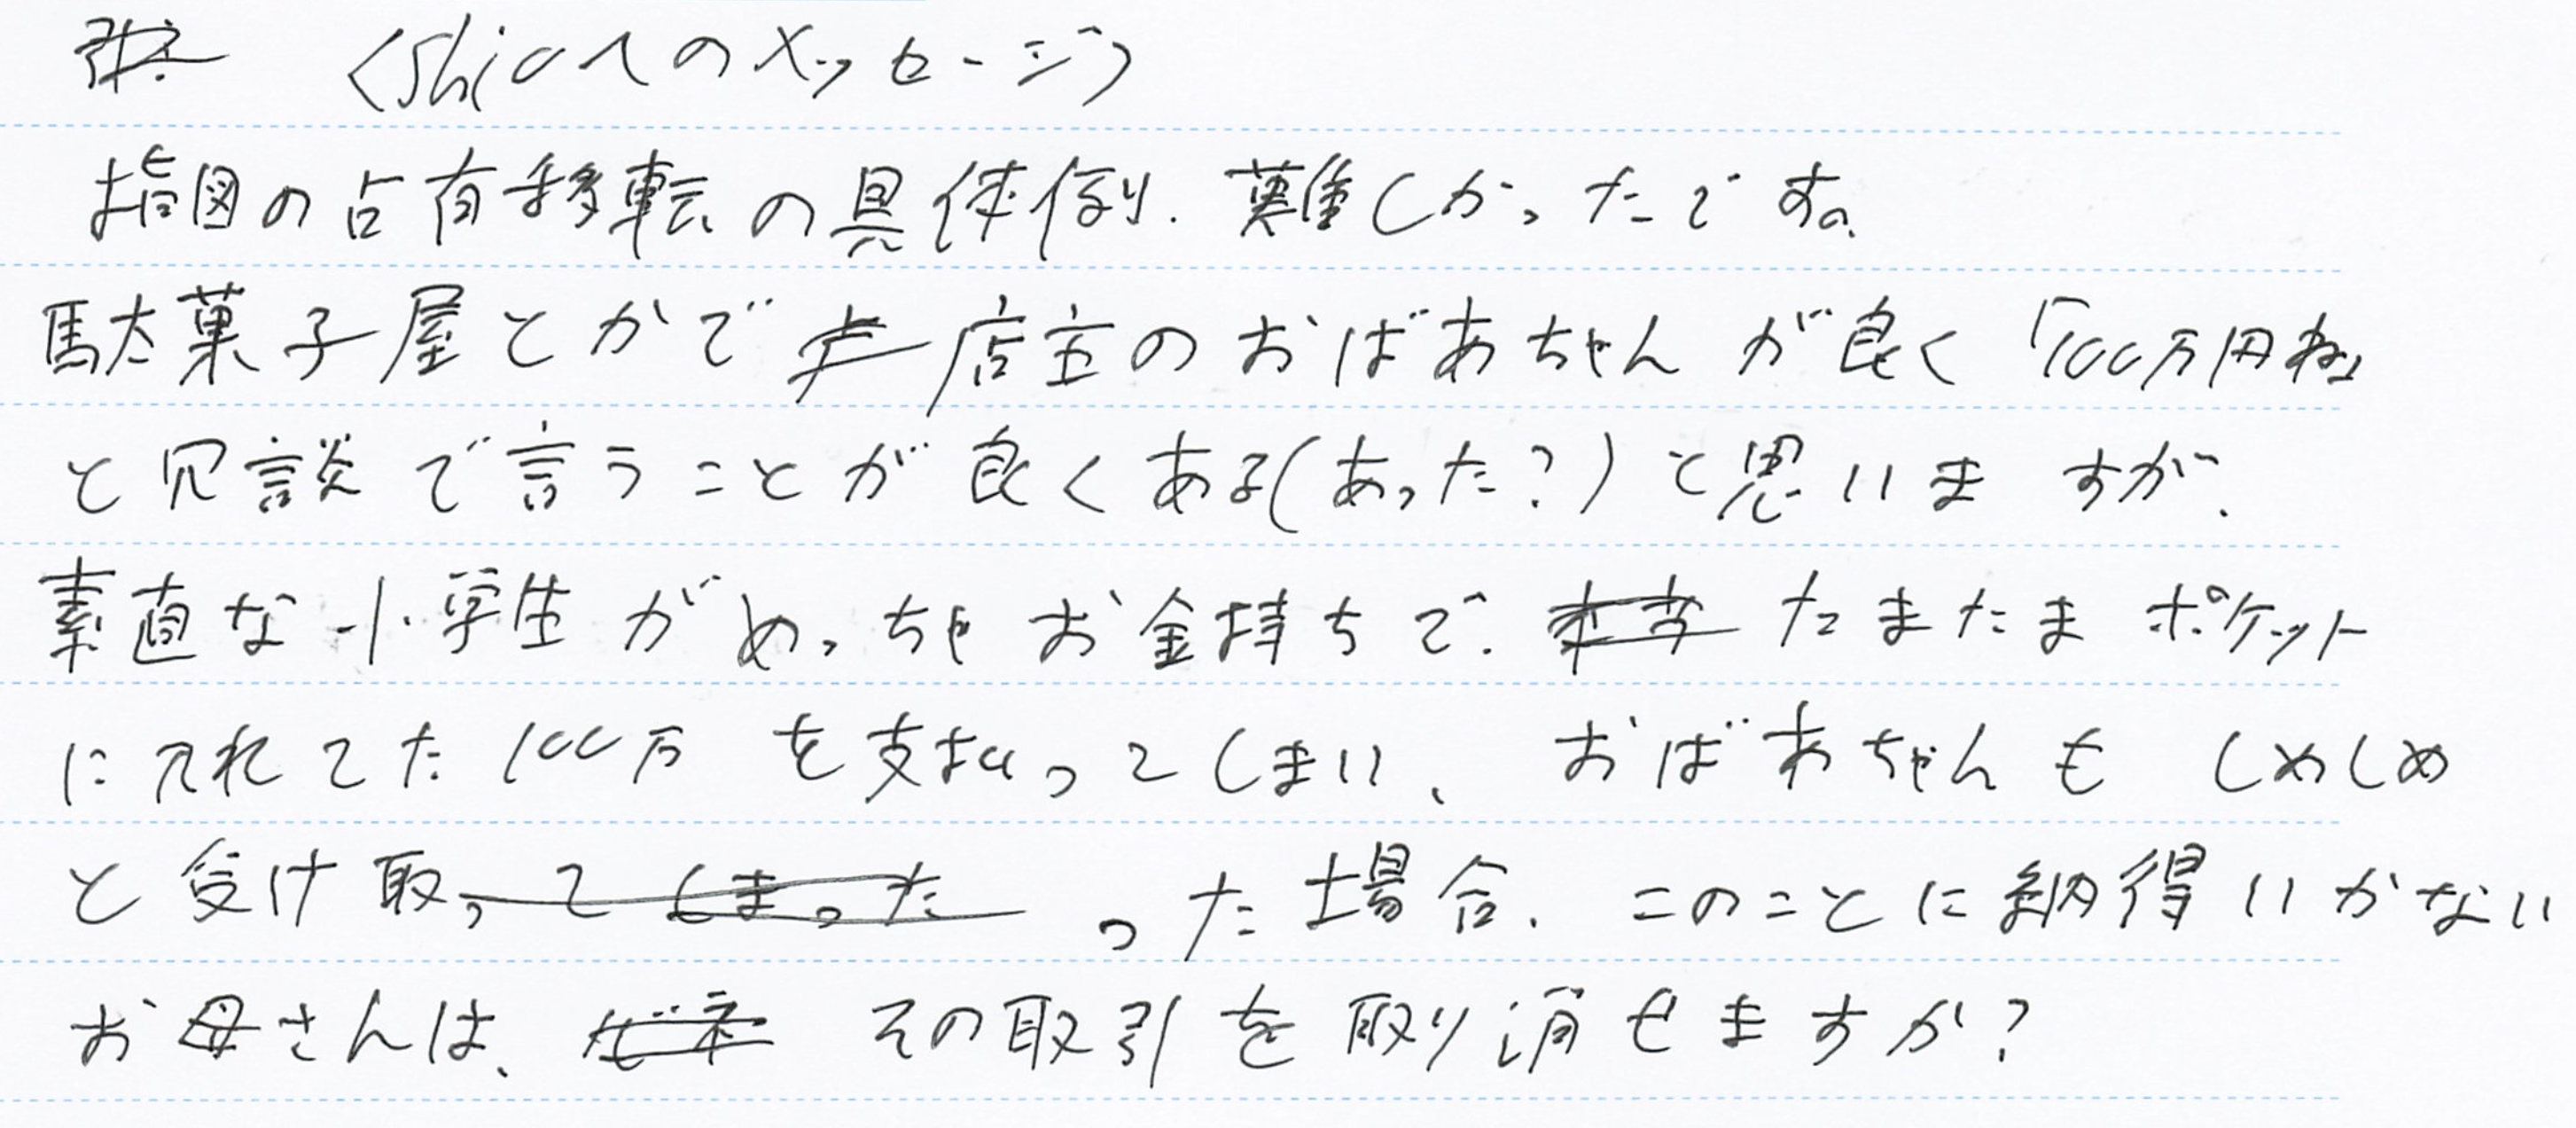 <shioへのメッセージ>
指図の占有移転の具体例、難しかったです。
駄菓子屋とかで店主のおばあちゃんが良く「100万円ね」
と冗談で言うことが良くある(あった?)と思いますが、
素直な小学生がめっちゃお金持ちで、たまたまポケット
に入れてた100万を支払ってしまい、おばあちゃんもしめしめ
と受け取った場合、このことに納得いかない
お母さんは、その取引を取り消せますか?